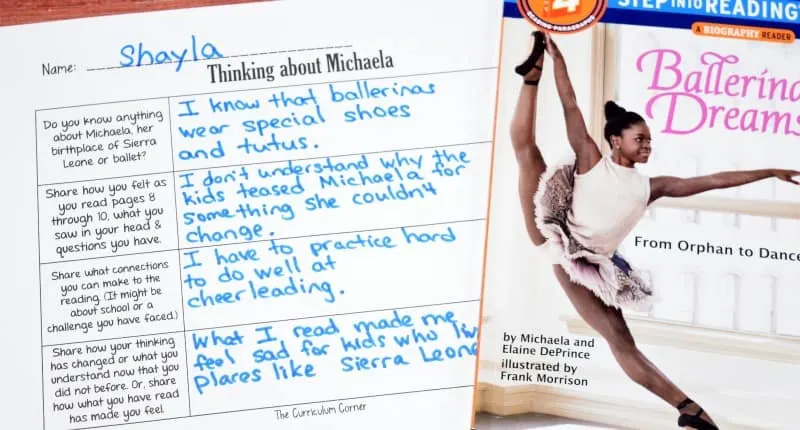 Name: Shayla
Thinking about Michaela
Do you know anything
about Michaela, her
birthplace of Sierra
Leone or ballet?
I know that ballerinas
wear special shoes
and tutus.
Share how you felt as
you read pages 8
through 10, what you
saw in your head &
questions you have.
I don't understand why the
kids teased Michaela for
something she couldn't
change.
Share what connections
you can make to the
reading. (It might be
about school or a
challenge you have faced.)
I have to practice hard
to do well at
cheerleading.
Share how your thinking
has changed or what you
understand now that you
did not before. Or, share
how what you have read
has made you feel.
What I read made me
feel sad for kids who liv
places like Sierra Leone
The Curriculum Corner
STEP INTO READING
4
READING PARAGRAPHS
A BIOGRAPHY READER
Ballerina
Dreams
From Orphan to Dance
by Michaela and
Elaine DePrince
illustrated by
Frank Morrison